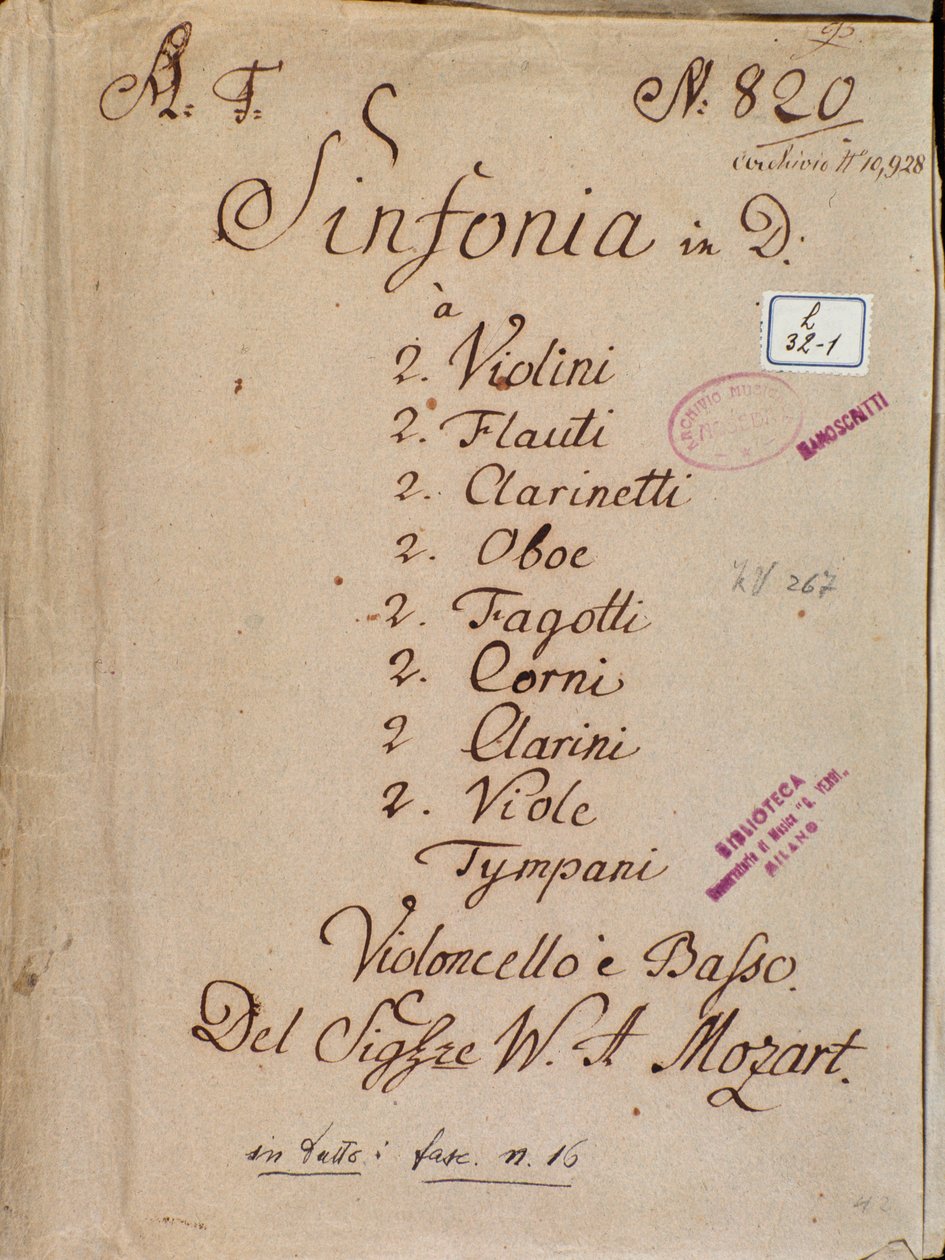 N: 820
Archivio N° 10,928
Sinfonia in D:
à
2. Violini
2. Flauti
2. Clarinetti
2. Oboe
2. Fagotti
2. Corni
2 Clarini
2. Viole
Tympani
Violoncello è Basso.
Del Sigre W. A Mozart.
in tutto: fasc. n. 16
L
32-1
ARCHIVIO MUSICALE
NOSEDA
MANOSCRITTI
KV 267
BIBLIOTECA
Conservatorio di Musica "G. VERDI"
MILANO
42